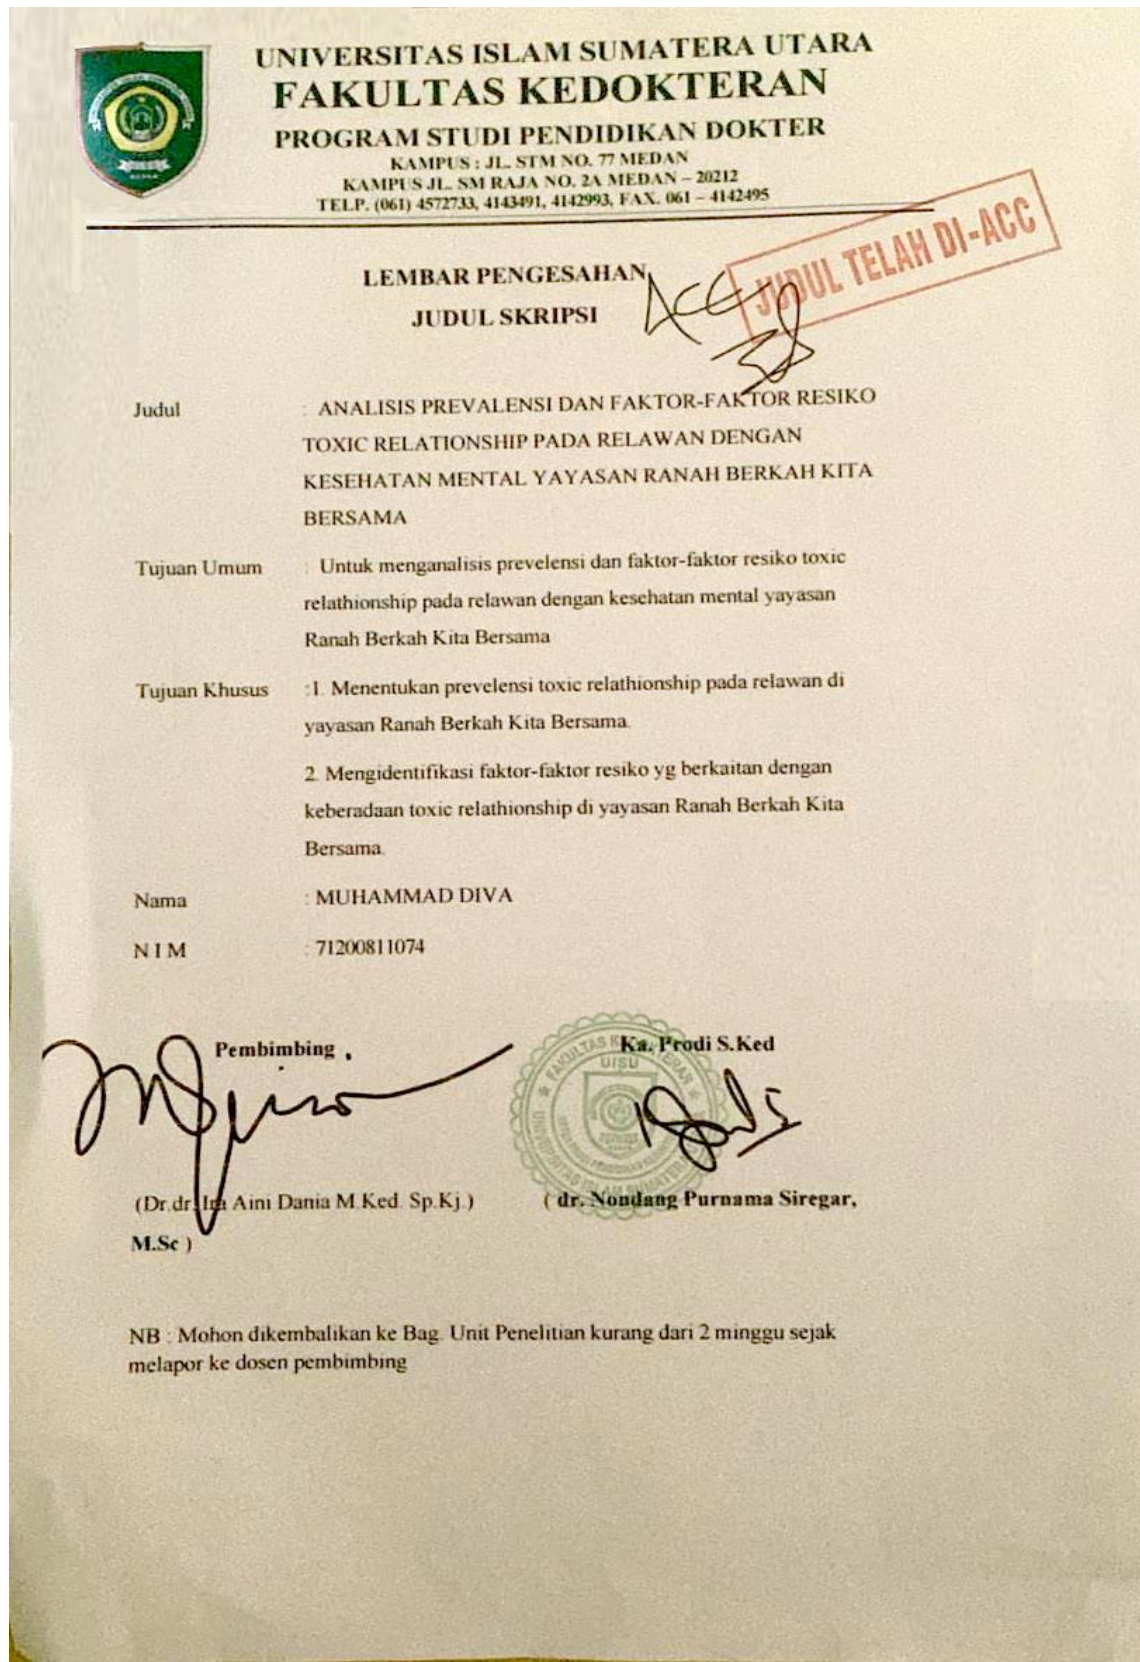 UNIVERSITAS ISLAM SUMATERA UTARA
FAKULTAS KEDOKTERAN
PROGRAM STUDI PENDIDIKAN DOKTER
KAMPUS : JL. STM NO. 77 MEDAN
KAMPUS JL. SM RAJA NO. 2A MEDAN – 20212
TELP. (061) 4572733, 4143491, 4142993, FAX. 061 – 4142495
JUDUL TELAH DI-ACC
LEMBAR PENGESAHAN
JUDUL SKRIPSI
ACC
Judul : ANALISIS PREVALENSI DAN FAKTOR-FAKTOR RESIKO
TOXIC RELATIONSHIP PADA RELAWAN DENGAN
KESEHATAN MENTAL YAYASAN RANAH BERKAH KITA
BERSAMA
Tujuan Umum : Untuk menganalisis prevelensi dan faktor-faktor resiko toxic
relathionship pada relawan dengan kesehatan mental yayasan
Ranah Berkah Kita Bersama
Tujuan Khusus :1. Menentukan prevelensi toxic relathionship pada relawan di
yayasan Ranah Berkah Kita Bersama.
2. Mengidentifikasi faktor-faktor resiko yg berkaitan dengan
keberadaan toxic relathionship di yayasan Ranah Berkah Kita
Bersama.
Nama : MUHAMMAD DIVA
N I M : 71200811074
Pembimbing , Ka. Prodi S.Ked
UISU
(Dr.dr. Ira Aini Dania M.Ked. Sp.Kj.) ( dr. Nondang Purnama Siregar,
M.Sc )
NB : Mohon dikembalikan ke Bag. Unit Penelitian kurang dari 2 minggu sejak
melapor ke dosen pembimbing